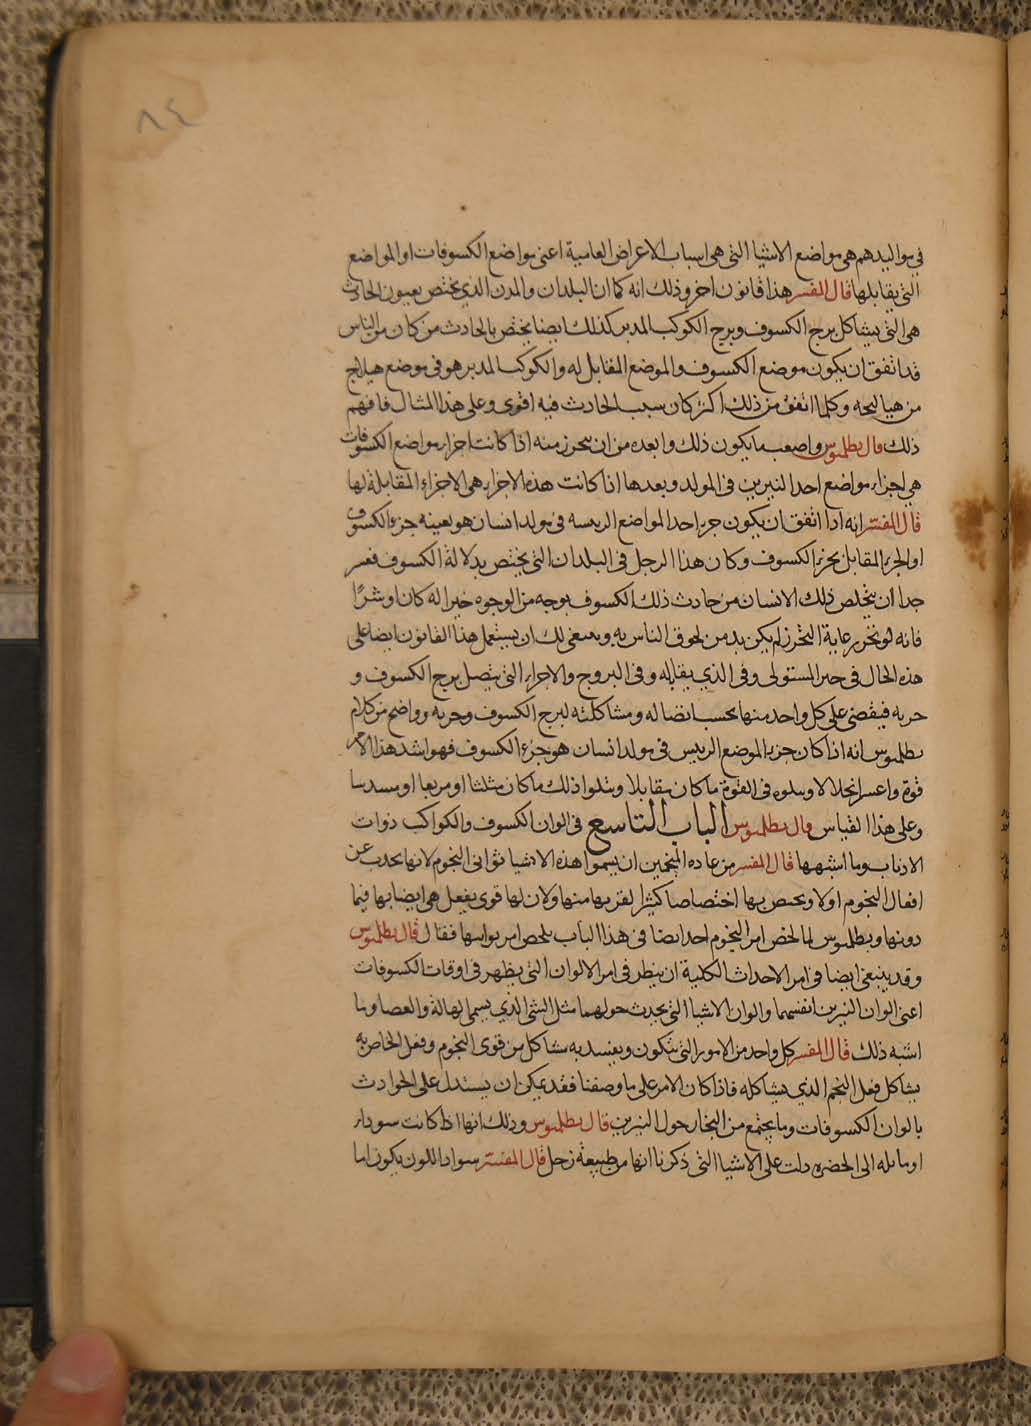 ٨٤
في مواليدهم هي مواضع الاشيا التي هي اسباب الاعراض العامية اعني مواضع الكسوفات او المواضع
التي يقابلها قال المفسر هذا قانون اخر وذلك انه كما ان البلدان والمدن الذي يختص بعيون الحادث
هي التي يشاكل برج الكسوف وبرج الكوكب المدبر كذلك ايضا يختص بالحادث من كان من الناس
قد اتفق ان يكون موضع الكسوف والموضع المقابل له والكوكب المدبر هو في موضع هيلاج
من هيالجه وكلما اتفق من ذلك اكثر كان سبب الحادث فيه اقوى وعلى هذا المثال فافهم
ذلك قال بطلميوس واصعب ما يكون ذلك وابعده من ان يتحرز منه اذا كانت اجزاء مواضع الكسوفات
هي اجزاء مواضع احد النيرين في المولد وبعدها اذا كانت هذه الاجزاء هي الاجزاء المقابلة لها
قال المفسر انه اذا اتفق ان يكون جزء احد المواضع الرييسه في مولد انسان هو بعينه جزء الكسوف
او الجزء المقابل لجزء الكسوف وكان هذا الرجل في البلدان التي يختص بدلالة الكسوف فعسر
جدا ان يتخلص ذلك الانسان من حادث ذلك الكسوف بوجه من الوجوه خيرا له كان او شرا
فانه لو تحرز غاية التحرز لم يكن بد من لحوق الناس به وينبغي لك ان يستعمل هذا القانون ايضا على
هذه الحال في حيز المستولى وفي الذي يقابله وفي البروج والاجزاء التي يتصل ببرج الكسوف و
جزيه فيقضى على كل واحد منها بحسب اتصاله ومشاكلته لبرج الكسوف وجزيه وواضح من كلام
بطلميوس انه اذا كان جزء الموضع الرييس في مولد انسان هو جزء الكسوف فهو اشد هذا الامر
قوة واعسر انحلالا ويتلوه في القوة ما كان مقابلا ويتلوا ذلك ما كان مثلثا او مربعا او مسدسا
وعلى هذا القياس قال بطلميوس الباب التاسع في الوان الكسوف والكواكب ذوات
الاذناب وما اشبهها قال المفسر من عادة المنجمين ان يسموا هذه الاشيا ثواني النجوم لانها يحدث عن
افعال النجوم اولا ويختص بها اختصاصا كثيرا لقربها منها ولان لها قوى يفعل هي ايضا بها فيما
دونها وبطلميوس لما لخص امر النجوم اخذ ايضا في هذا الباب يلخص امر ثوانيها فقال قال بطلميوس
وقد ينبغي ايضا في امر الاحداث الكلية ان ينظر في امر الالوان التي يظهر في اوقات الكسوفات
اعني الوان النيرين انفسهما والوان الاشيا التي يحدث حولهما مثل الشي الذي يسمى الهالة والعصا وما
اشبه ذلك قال المفسر كل واحد من الامور التي يتكون ويفسد به مشاكل من قوى النجوم وفعل الخاص به
يشاكل فعل النجم الذي يشاكله فاذا كان الامر على ما وصفنا فقد يمكن ان يستدل على الحوادث
بالوان الكسوفات وما يجتمع من البخار حول النيرين قال بطلميوس وذلك انها اذا كانت سوداء
او مائله الى الخضره دلت على الاشيا التي ذكرنا انها من طبيعة زحل قال المفسر سواد اللون يكون اما